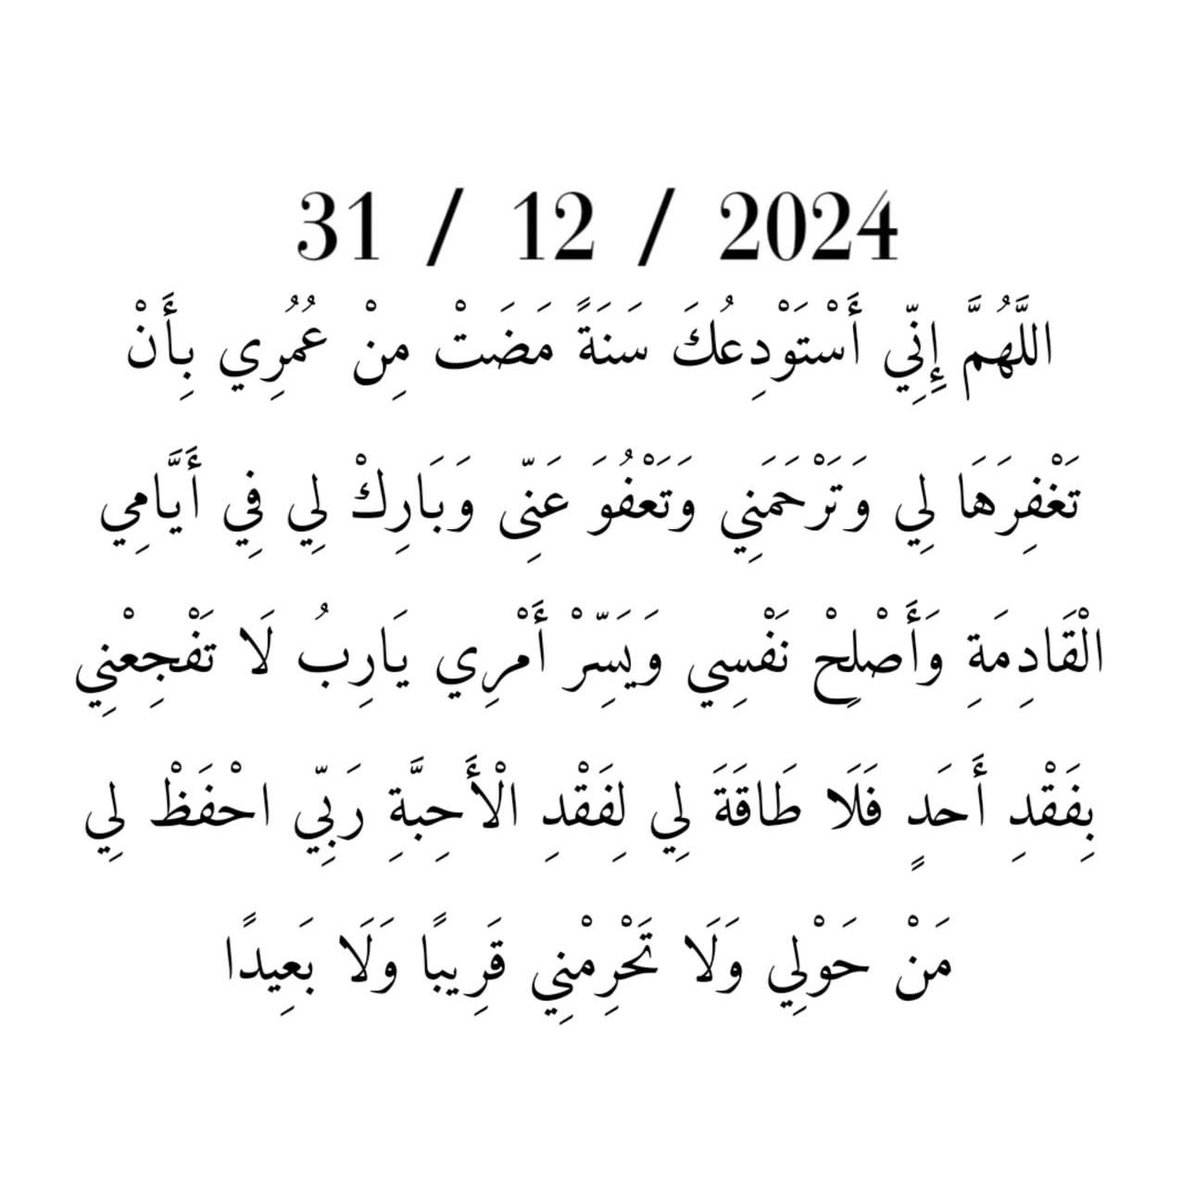 31 / 12 / 2024
اللَّهُمَّ إِنِّي أَسْتَوْدِعُكَ سَنَةً مَضَتْ مِنْ عُمُرِي بِأَنْ
تَغْفِرَهَا لِي وَتَرْحَمَنِي وَتَعْفُوَ عَنِّى وَبَارِكْ لِي فِي أَيَّامِي
الْقَادِمَةِ وَأَصْلِحْ نَفْسِي وَيَسِّرْ أَمْرِي يَارِبُ لَا تَفْجِعْنِي
بِفَقْدِ أَحَدٍ فَلَا طَاقَةَ لِي لِفَقْدِ الْأَحِبَّةِ رَبِّي احْفَظْ لِي
مَنْ حَوْلِي وَلَا تَحْرِمْنِي قَرِيبًا وَلَا بَعِيدًا